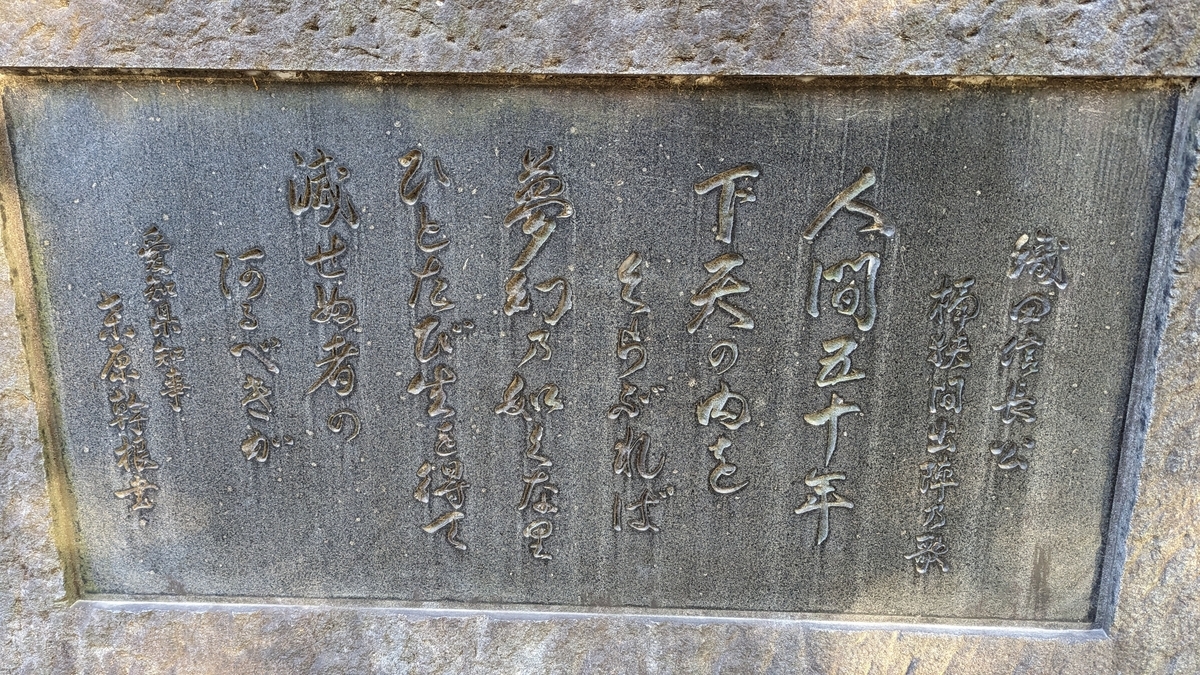 織田信長公
桶狭間出陣乃歌
人間五十年
下天の内を
くらぶれば
夢幻乃如くな里
ひとたび生を得て
滅せぬ者の
阿るべきが
愛知県知事
桑原幹根書